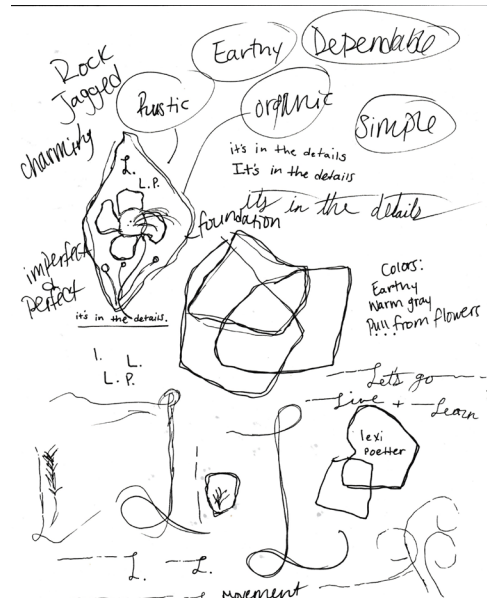 Rock
Jagged
Earthy
Dependable
Rustic
organic
Simple
charming
it's in the details
It's in the details
its in the details
L.
L.P.
foundation
imperfect
&
perfect
it's in the details.
Colors:
Earthy
Warm gray
Pull from flowers
L.
L.P.
Let's go
Live + Learn
lexi
Poetter
L
L
L. L.
MOVEMENT